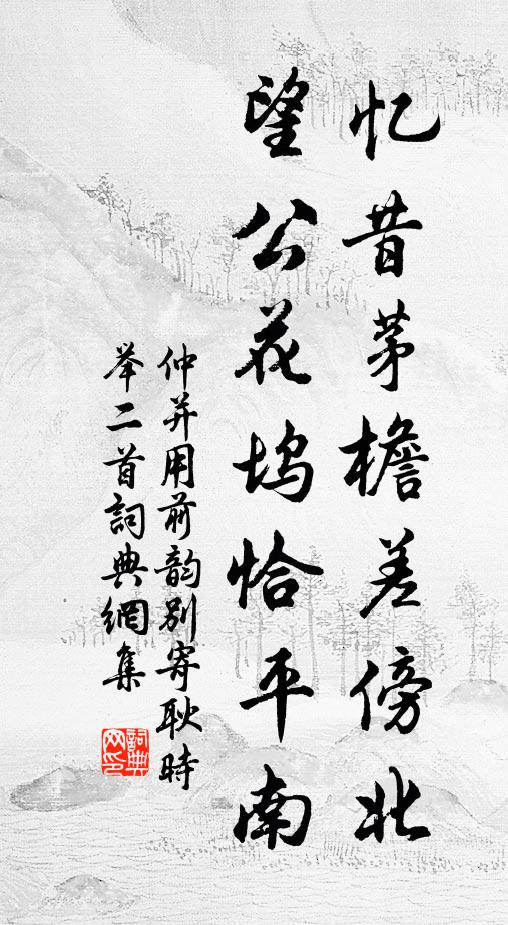 忆昔茅檐差傍北
望公花坞恰平南
仲并用前韵别寄耿時
举二首詞典網集
詞典网印